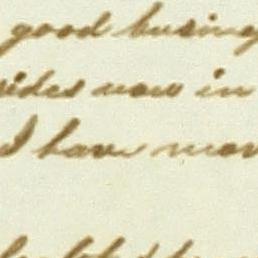 good busing
sides now in
I have mov